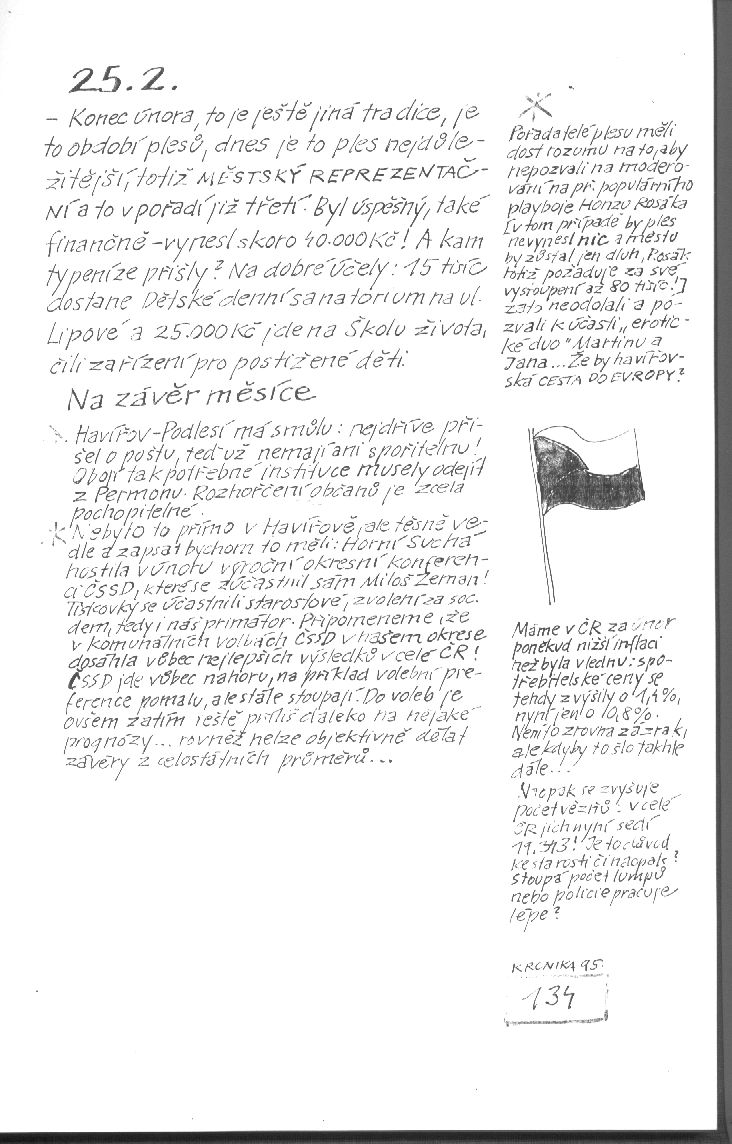 25.2.
– Konec února, to je ještě jiná tradice, je
to období plesů, dnes je to ples nejdůle-
žitější, totiž MĚSTSKÝ REPREZENTAČ-
NÍ a to v pořadí již třetí. Byl úspěšný, také
finančně – vynesl skoro 40.000 Kč! A kam
ty peníze přišly? Na dobré účely: 15 tisíc
dostane Dětské denní sanatorium na ul.
Lipové a 25.000 Kč jde na Školu života,
čili zařízení pro postižené děti.
Na závěr měsíce
Havířov-Podlesí má smůlu: nejdříve při-
šel o poštu, teď už nemají ani spořitelnu!
Obojí tak potřebné instituce musely odejít
z Permonu. Rozhořčení občanů je zcela
pochopitelné.
Nebylo to přímo v Havířově, ale těsně ve-
dle a zapsat bychom to měli: Horní Suchá
hostila v únoru výroční okresní konferen-
ci ČSSD, které se zúčastnil sám Miloš Zeman!
Tiskovky se účastnili starostové, zvolení za soc.
dem, tedy i náš primátor. Připomeneme, že
v komunálních volbách ČSSD v našem okrese
dosáhla vůbec nejlepších výsledků v celé ČR!
ČSSD jde vůbec nahoru, na příklad volební pre-
ference pomalu, ale stále stoupají. Do voleb je
ovšem zatím ještě příliš daleko na nějaké
prognózy... rovněž nelze objektivně dělat
závěry z celostátních průměrů...
Pořadatelé plesu měli
dost rozumu na to, aby
nepozvali na modero-
vání na př. populárního
playboje Honzu Rosáka
[v tom případě by ples
nevynesl nic a městu
by zůstal jen dluh, Rosák
totiž požaduje za své
vystoupení až 80 tisíc!]
zato neodolali a po-
zvali k účasti „erotic-
ké duo" Martinu a
Jana... Že by havířov-
ská CESTA DO EVROPY?
Máme v ČR za únor
poněkud nižší inflaci
než byla v lednu: spo-
třebitelské ceny se
tehdy zvýšily o 1,4%,
nyní jen o 0,8%.
Není to zrovna zázrak,
ale kdyby to šlo takhle
dále...
Naopak se zvyšuje
počet vězňů: v celé
ČR jich nyní sedí
19.343! Je to důvod
ke starosti či naopak?
Stoupá počet lumpů
nebo policie pracuje
lépe?
KRONIKA 95.
134